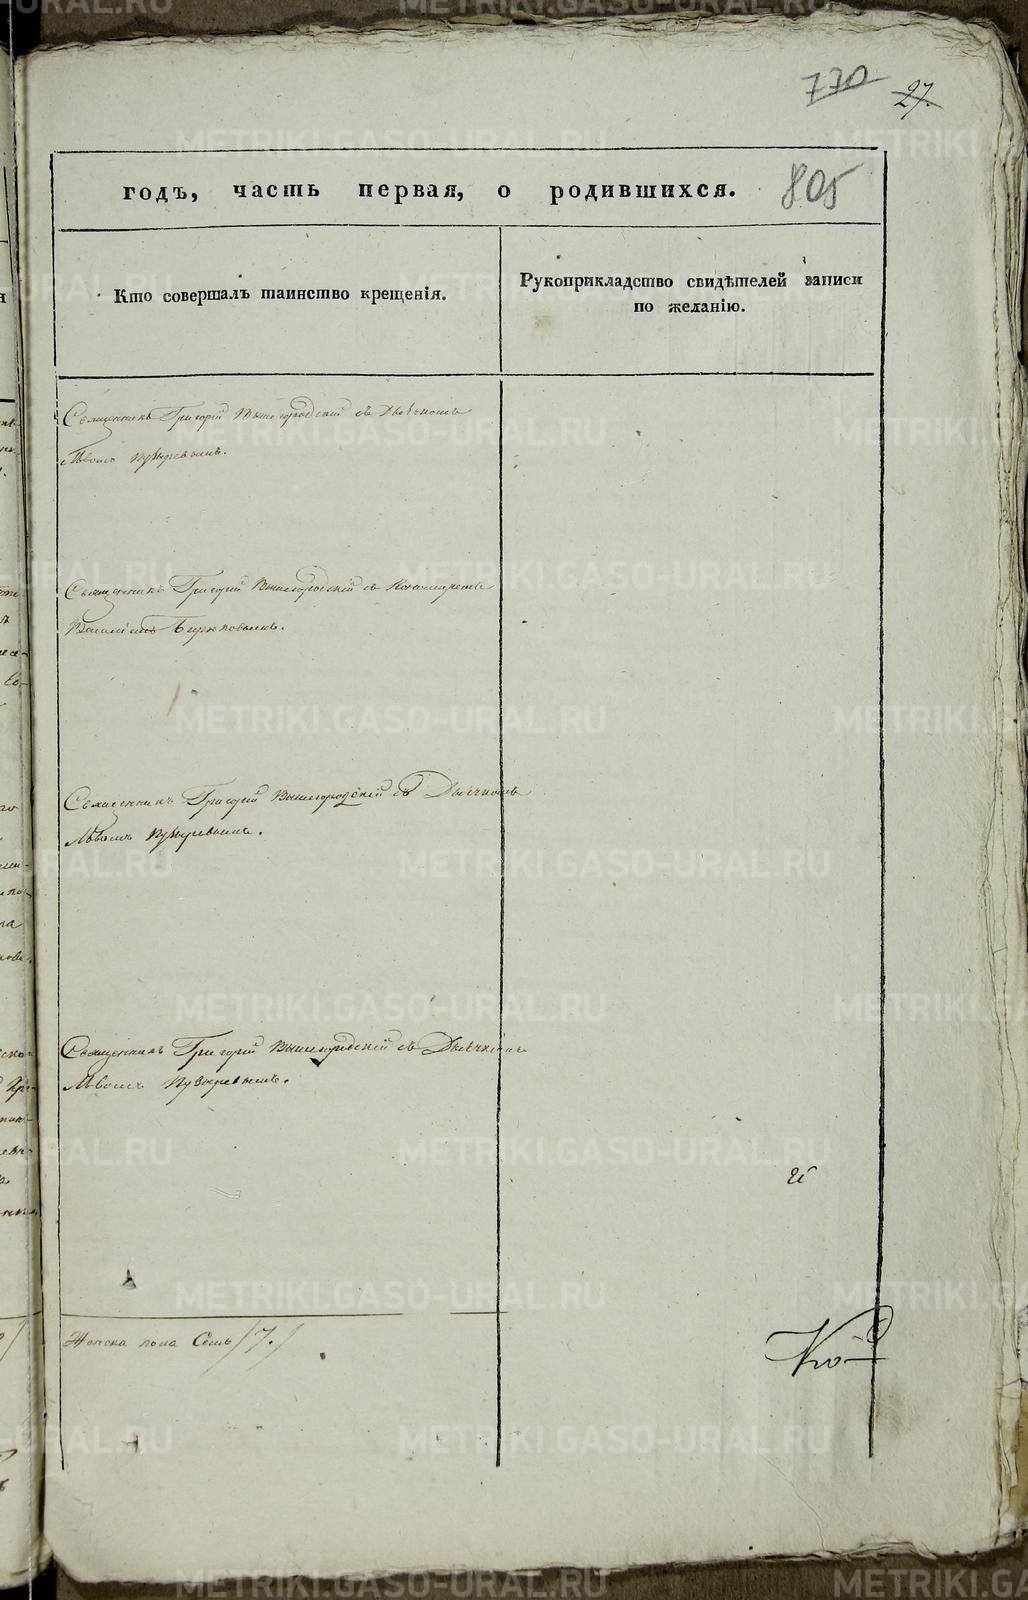 770
27.
годъ, часть первая, о родившихся. 805
Кто совершалъ таинство крещенія.
Рукоприкладство свидѣтелей записи
по желанію.
Священникъ Григорій Вышегородскій съ Дьячкомъ
Львомъ Пузыревымъ.
Священникъ Григорій Вышегородскій съ Пономаремъ
Василіемъ Бирюковымъ.
Священникъ Григорій Вышегородскій съ Дьячкомъ
Львомъ Пузыревымъ.
Священникъ Григорій Вышегородскій съ Дьячкомъ
Львомъ Пузыревымъ.
Женска пола Семь /7./
METRIKI.GASO-URAL.RU